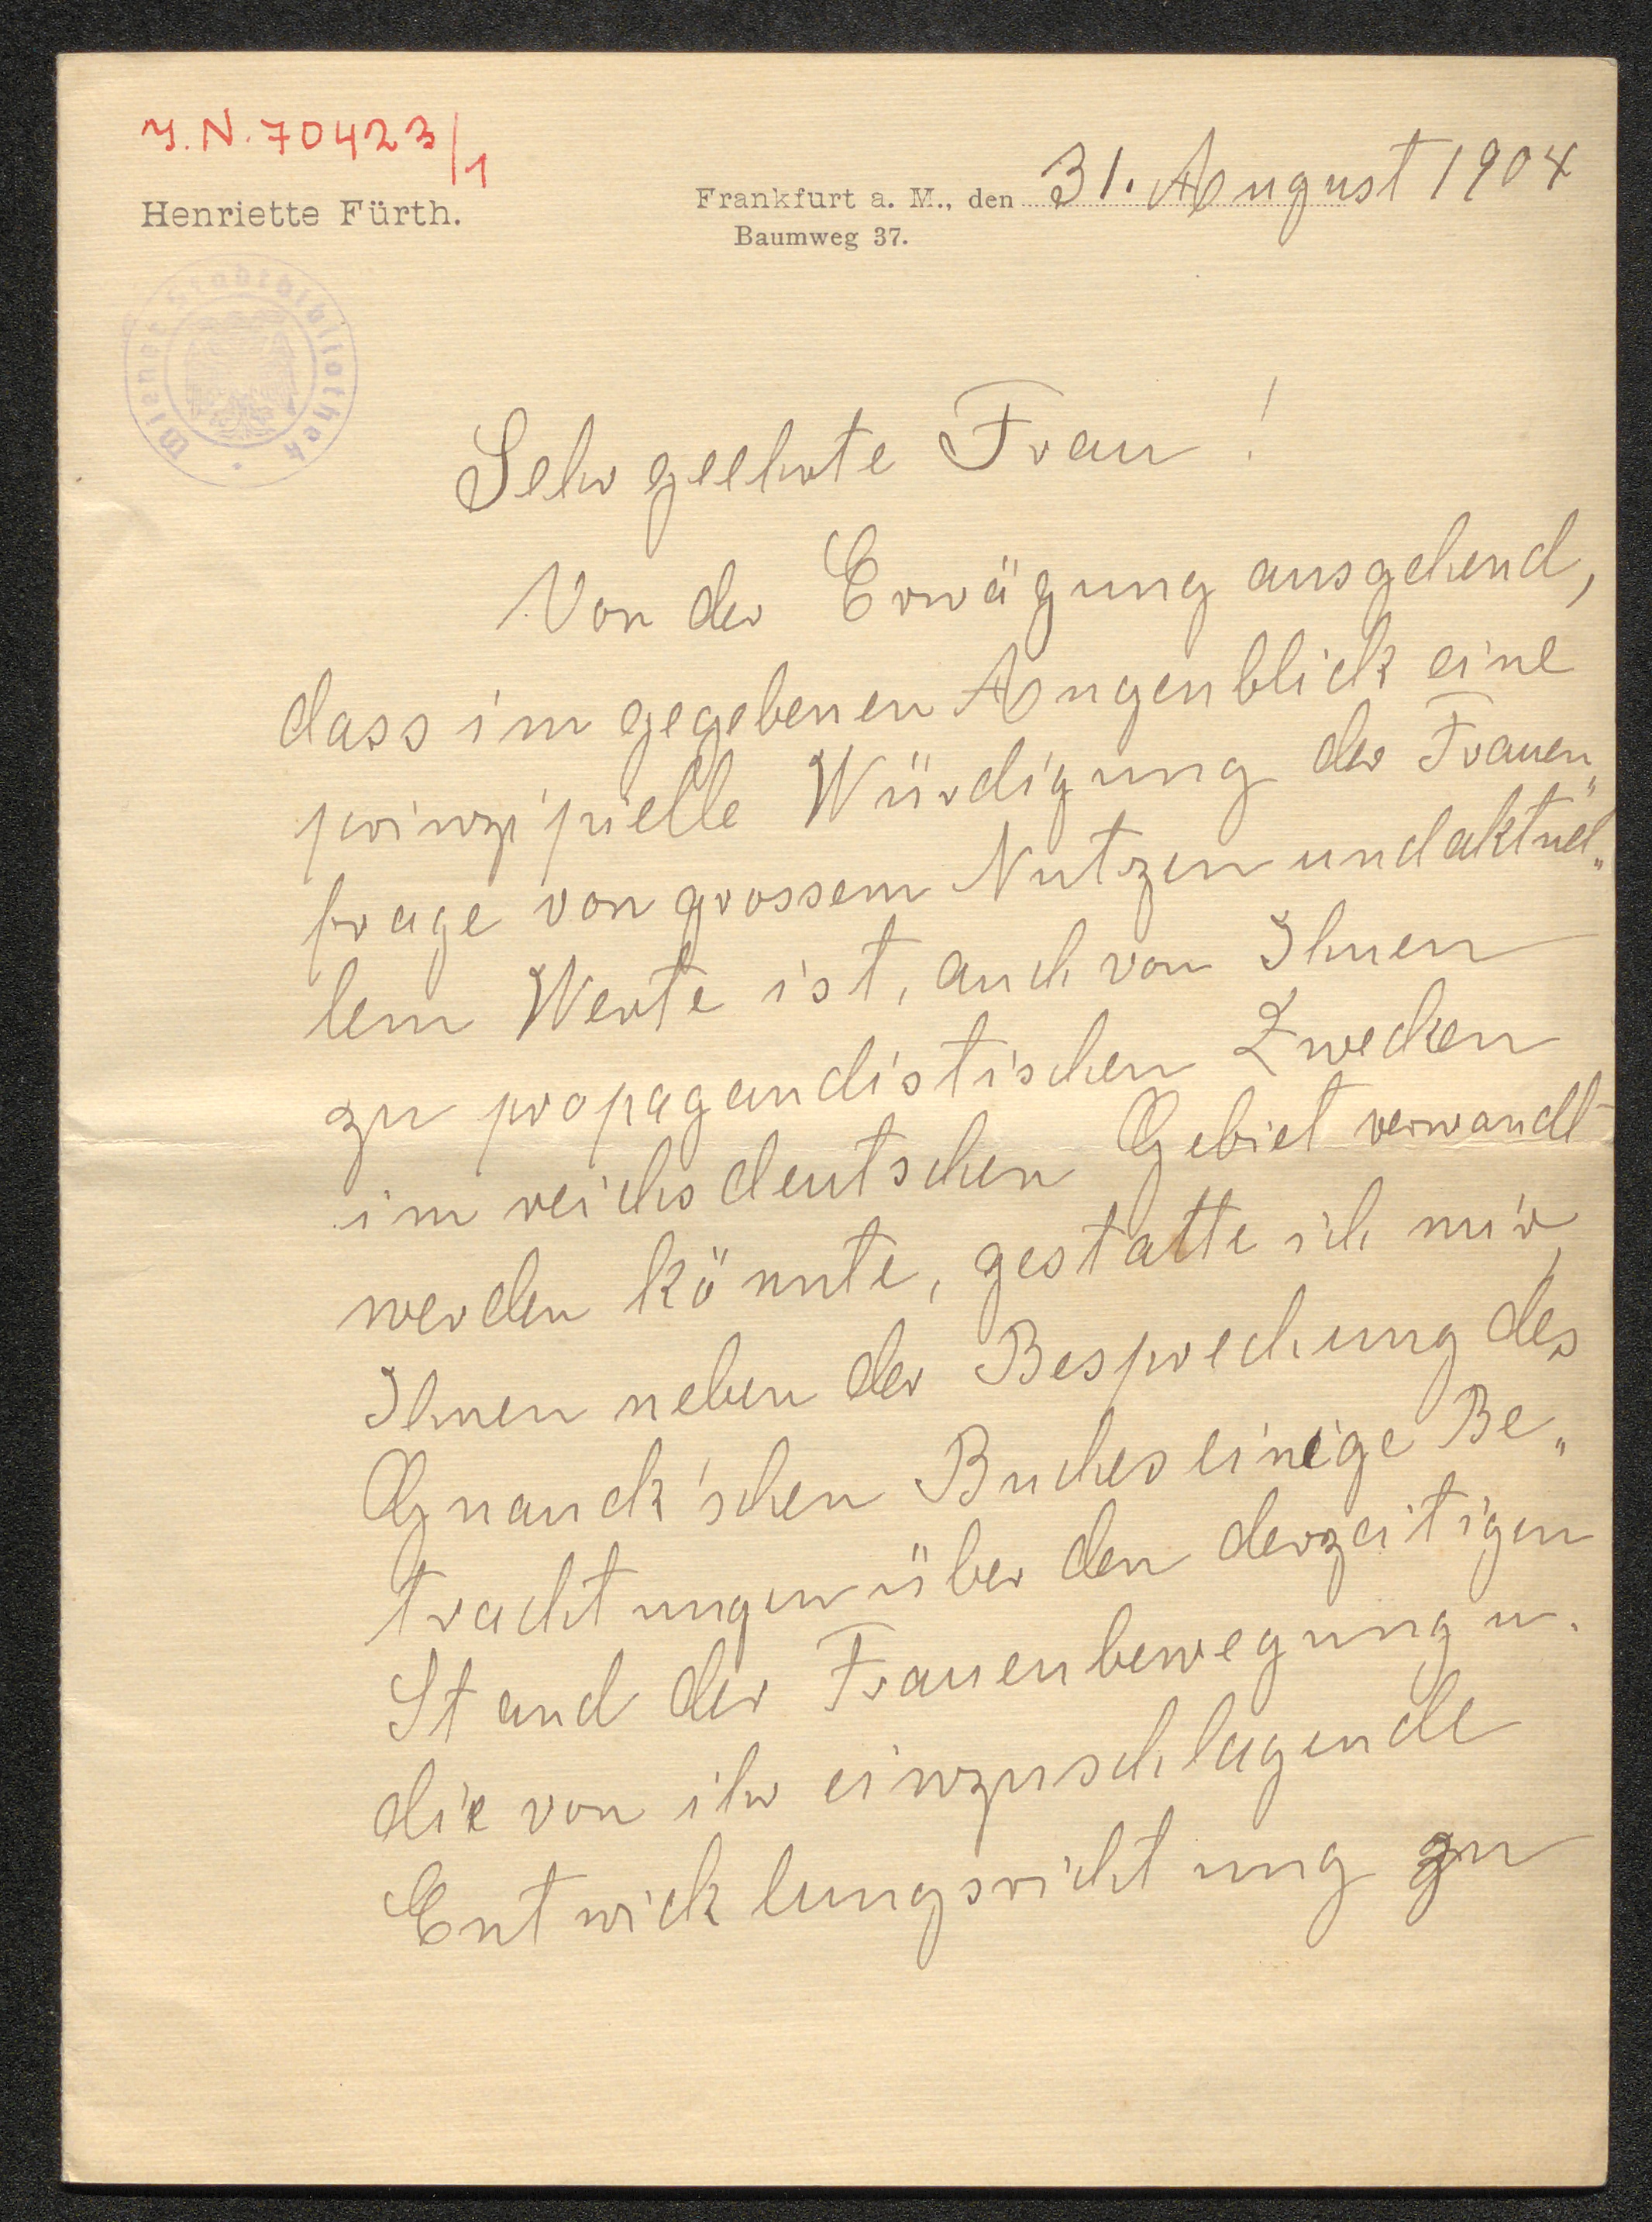 J.N. 70423/1
Henriette Fürth.
Frankfurt a. M., den 31. August 1904
Baumweg 37.
Wiener Stadtbibliothek
Sehr geehrte Frau!
Von der Erwägung ausgehend,
dass im gegebenen Augenblick eine
prinzipielle Würdigung der Frauen„
frage von grossem Nutzen und aktuel„
lem Werte ist, auch von Ihnen
zu propagandistischen Zwecken
im reichsdeutschen Gebiet verwandt
werden könnte, gestatte ich mir,
Ihnen neben der Besprechung des
Gnauck'schen Buches einige Be„
trachtungen über den derzeitigen
Stand der Frauenbewegung u.
die von ihr einzuschlagende
Entwicklungsrichtung zu